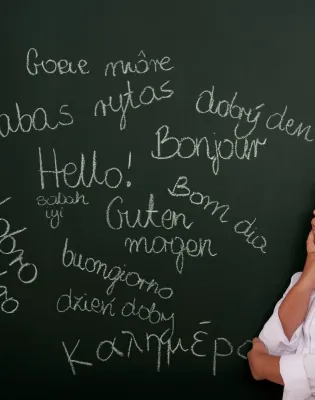 Goeie môre
abas rytas
dobrý den
Bonjour
Hello!
sabah
iyi
Bom dia
Guten
morgen
buongiorno
dzień dobry
καλημέρα